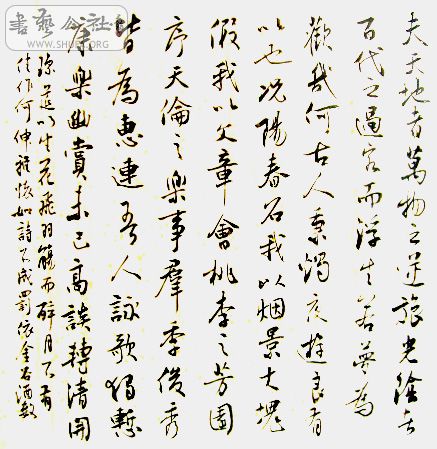 夫天地者萬物之逆旅光陰者
百代之過客而浮生若夢為
歡幾何古人秉燭夜遊良有
以也况陽春召我以烟景大塊
假我以文章會桃李之芳園
序天倫之樂事羣季俊秀
皆為惠連吾人詠歌獨慙
康樂幽賞未已高談轉清開
瓊筵以坐花飛羽觴而醉月不有
佳作何伸雅懷如詩不成罰依金谷酒數
書藝公社